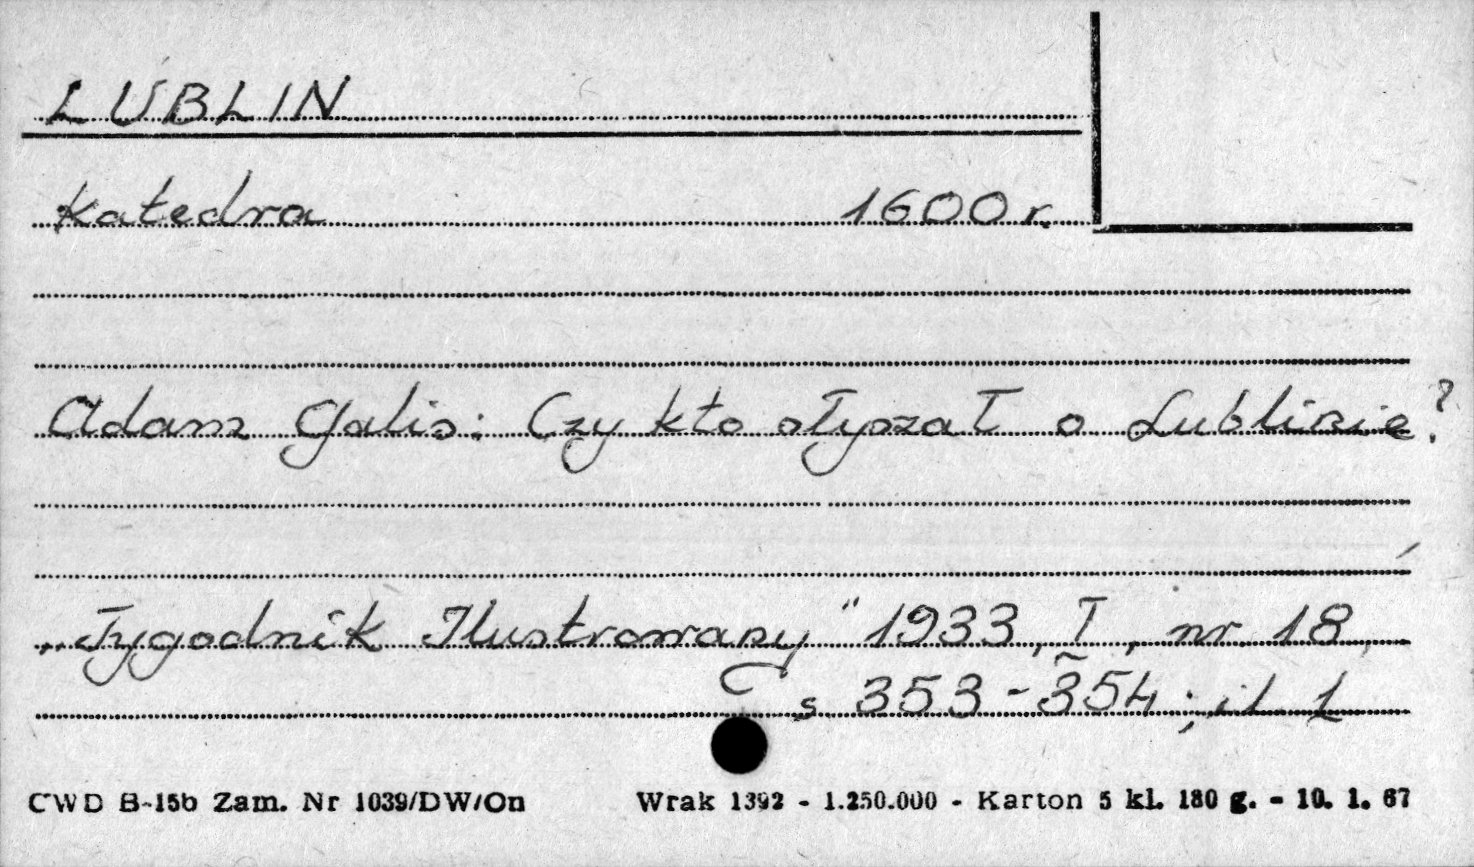 LUBLIN
Katedra 1600 r.
Adam Galis: Czy kto słyszał o Lublinie?
„Tygodnik Ilustrowany" 1933, I, nr 18,
s 353-354; il 1
CWD B-15b Zam. Nr 1039/DW/On Wrak 1392 - 1.250.000 - Karton 5 kl. 180 g. - 10. 1. 67